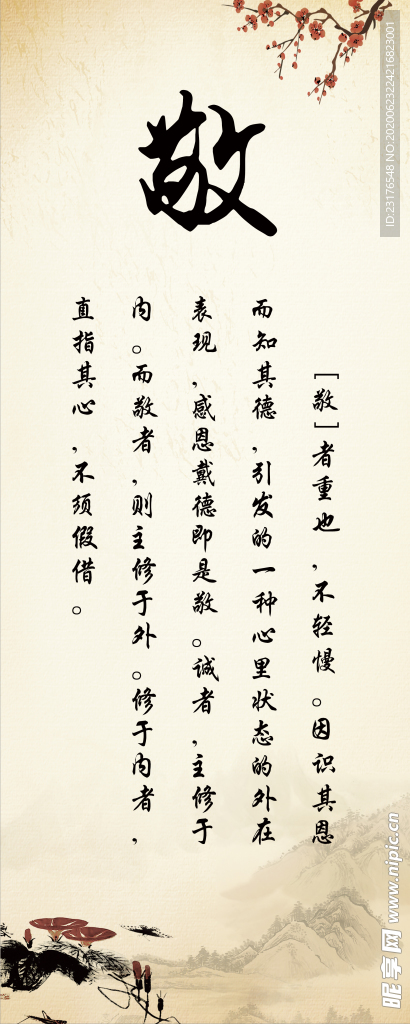 敬
［敬］者重也，不轻慢。因识其恩
而知其德，引发的一种心里状态的外在
表现，感恩戴德即是敬。诚者，主修于
内。而敬者，则主修于外。修于内者，
直指其心，不须假借。
ID:23176548 NO:20200623224216823001
昵享网 www.nipic.cn